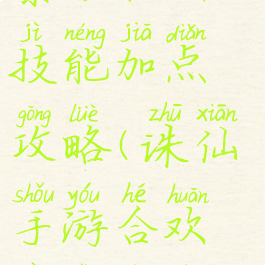 jì néng jiā diǎn
技能加点
gōng lüè zhū xiān
攻略(诛仙
shǒu yóu hé huān
手游合欢